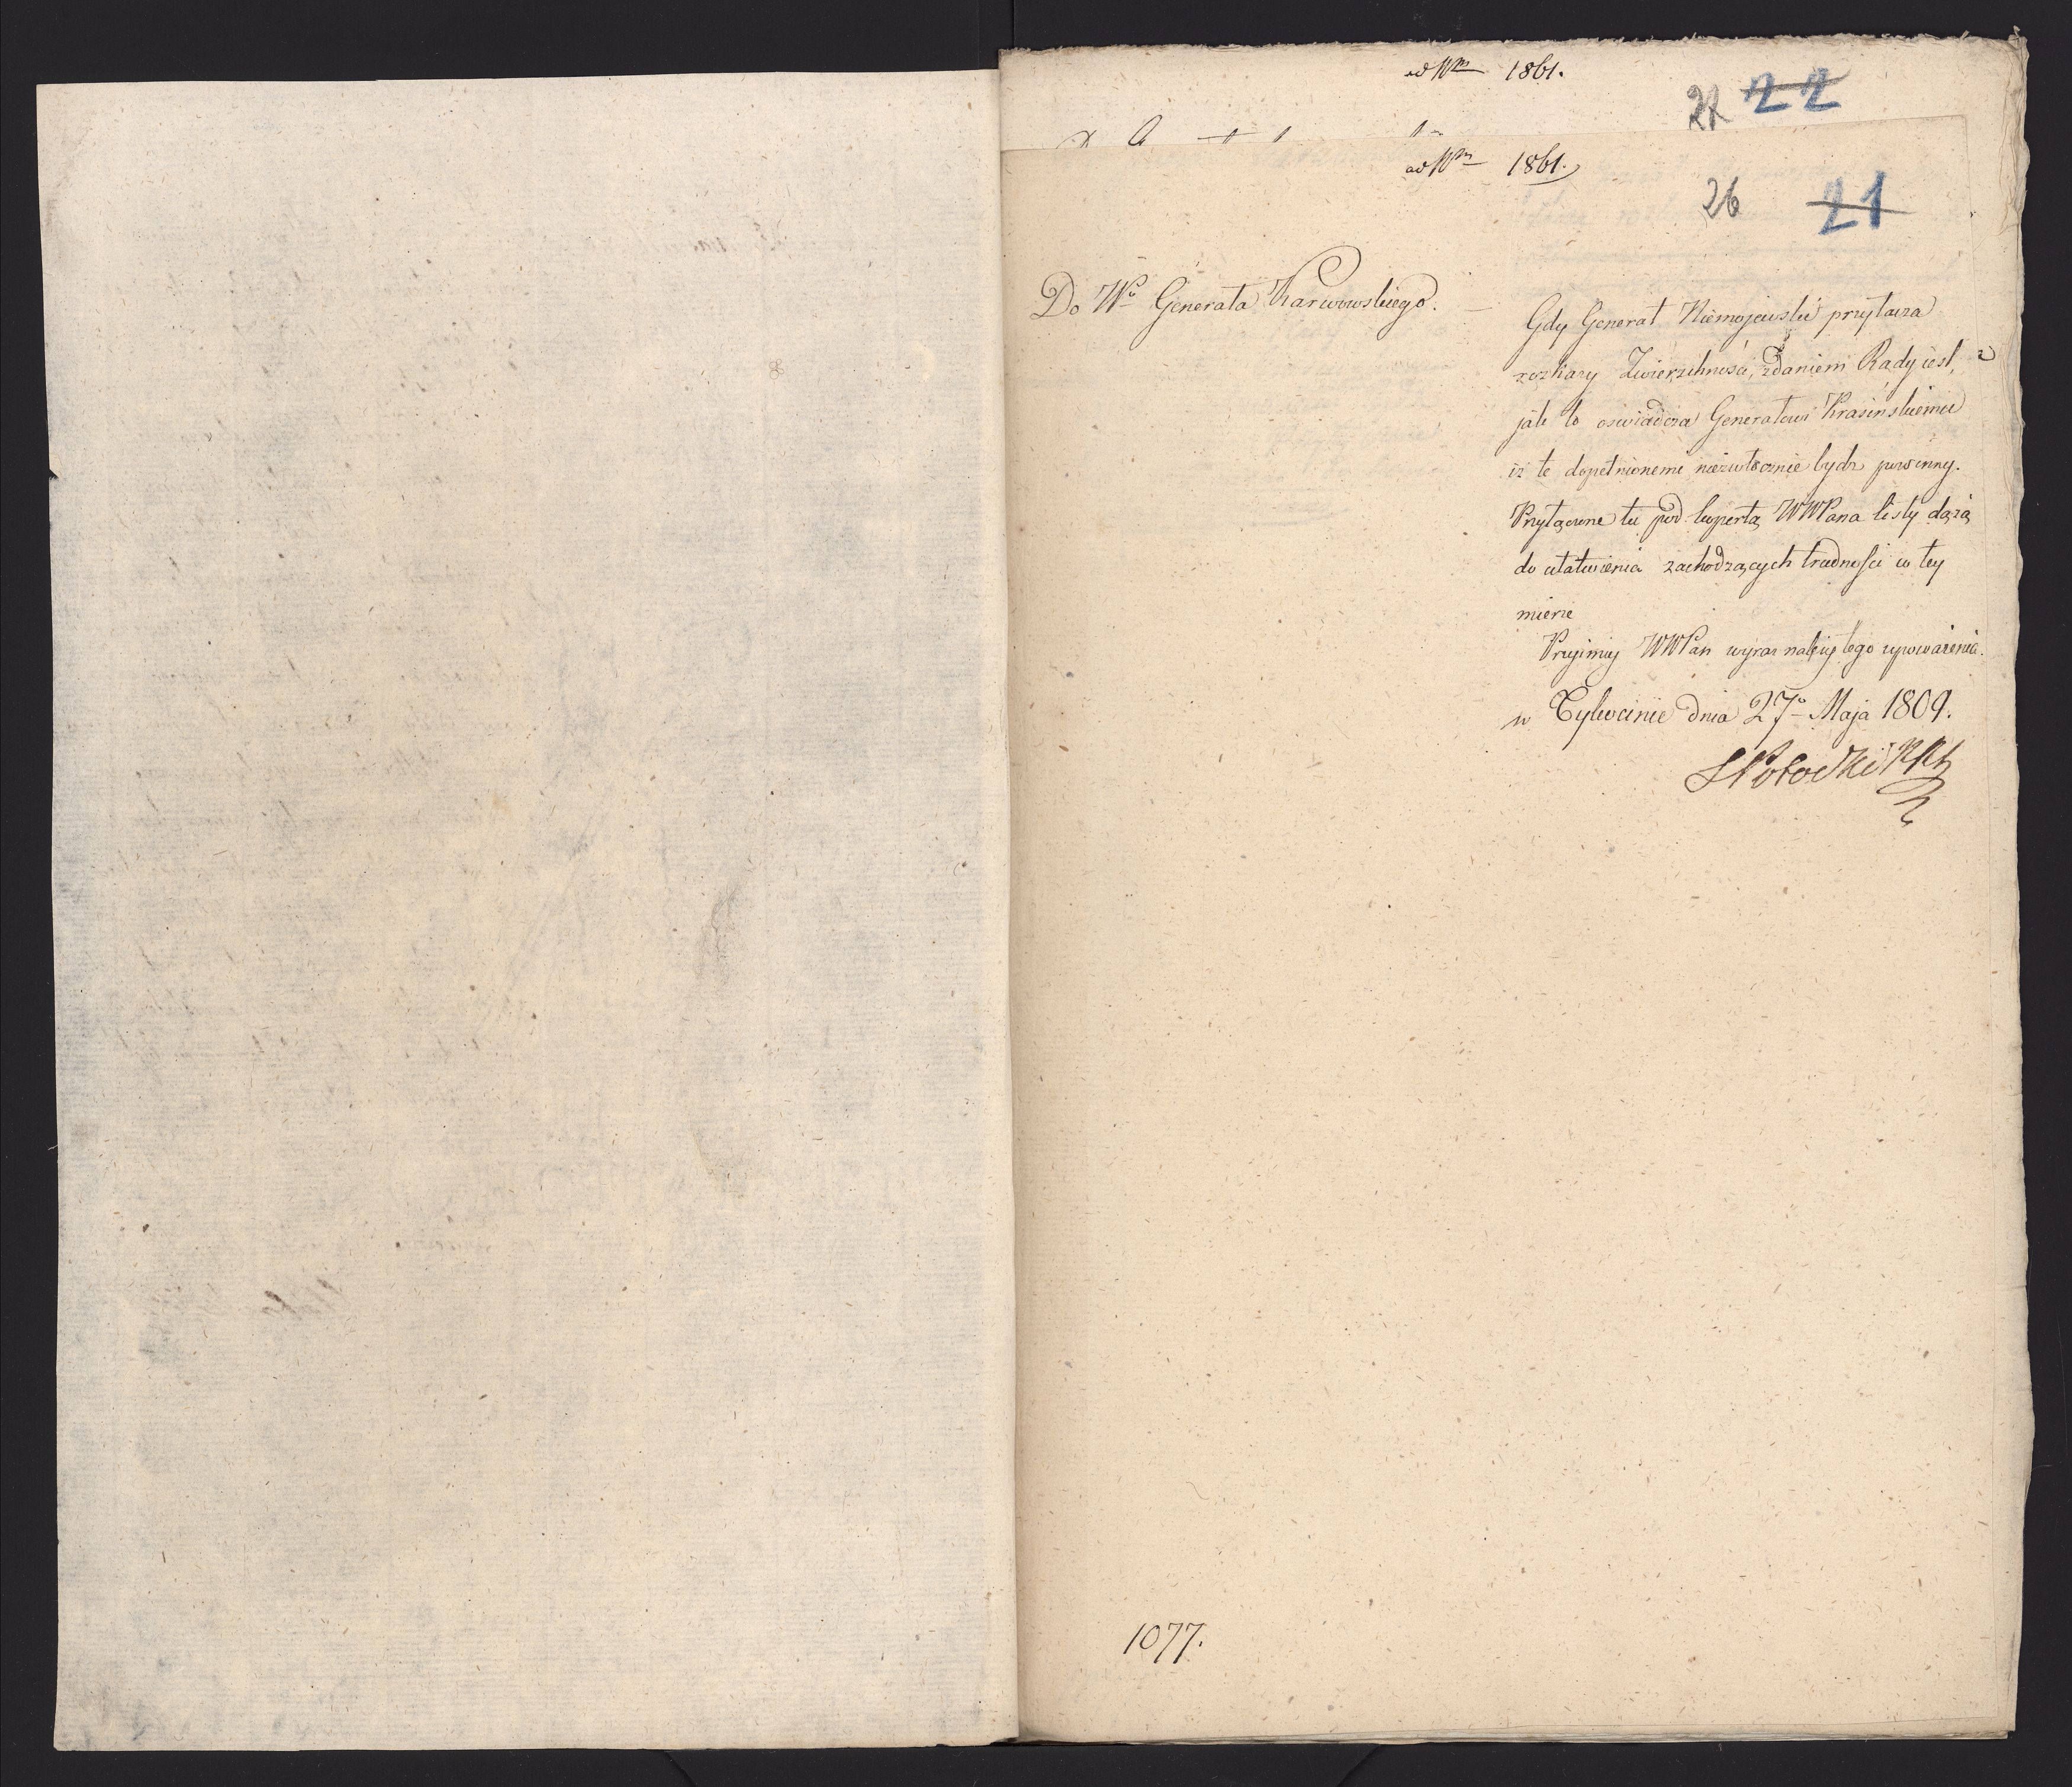 ad Nrm 1861.
27 22
ad Nrm 1861.
26 21
Do Wo Generała Karwowskiego.
Gdy Generał Niemojewski przytacza
rozkazy Zwierzchności, zdaniem Rady iest,
jak to oswiadcza Generałowi Krasinskiemu
iż te dopełnionemi niezwłocznie bydz powinny.
Przyłączone tu pod kopertą WWPana listy dążą
do ułatwienia zachodzących trudności w tey
mierze
Przyimiy WWPan wyraz należytego upoważenia.
w Tykocinie dnia 27o Maja 1809.
SPotocki
1077.